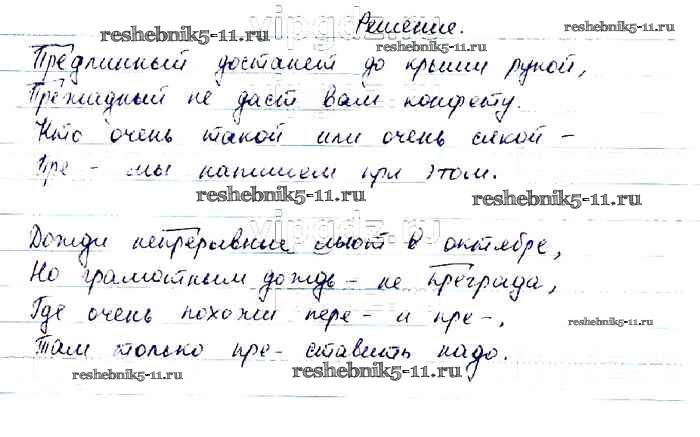 Решение.
reshebnik5-11.ru
reshebnik5-11.ru
Предлинный достанет до крыши рукой,
Прежадный не даст вам конфету.
Кто очень такой или очень сякой –
Пре – мы напишем при этом.
reshebnik5-11.ru
reshebnik5-11.ru
vipgdz.ru
Дожди непрерывные льют в октябре,
Но грамотным дождь – не преграда,
Где очень похожи пере – и пре –,
reshebnik5-11.ru
Там только пре – ставить надо.
reshebnik5-11.ru
reshebnik5-11.ru